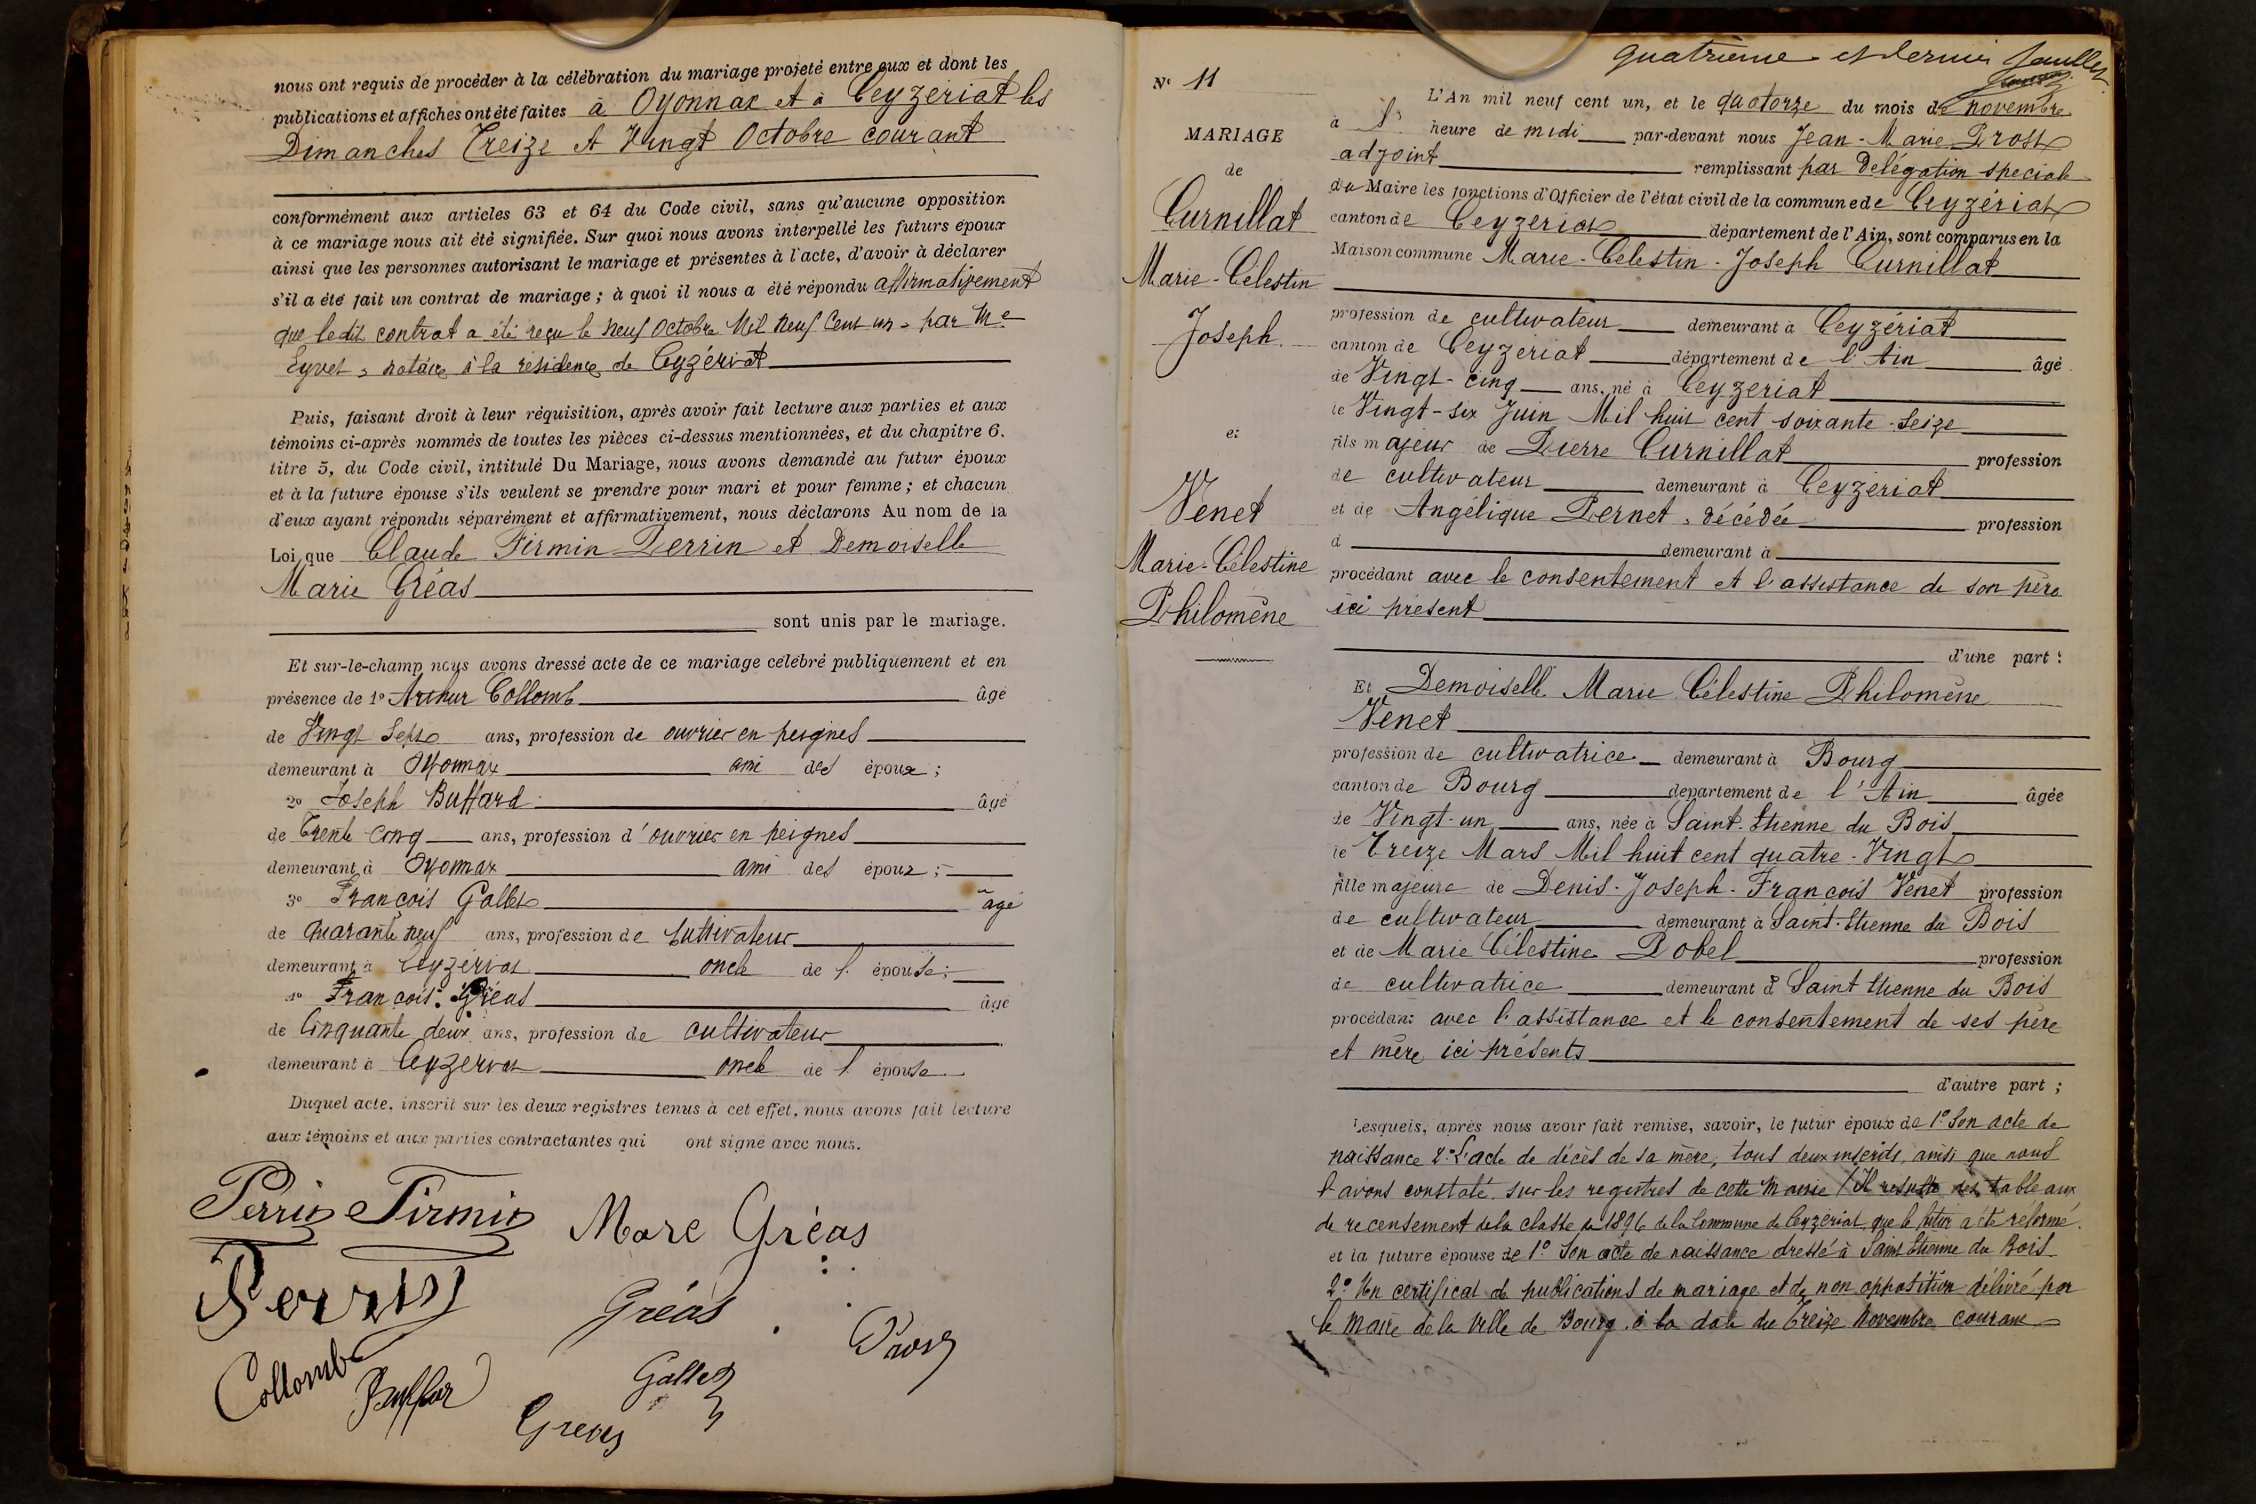 nous ont requis de procéder à la célébration du mariage projeté entre eux et dont les
publications et affiches ont été faites à Oyonnax et à Ceyzériat les
Dimanches Treize et Vingt Octobre courant
conformément aux articles 63 et 64 du Code civil, sans qu'aucune opposition
à ce mariage nous ait été signifiée. Sur quoi nous avons interpellé les futurs époux
ainsi que les personnes autorisant le mariage et présentes à l'acte, d'avoir à déclarer
s'il a été fait un contrat de mariage ; à quoi il nous a été répondu affirmativement
que ledit contrat a été reçu le neuf Octobre Mil neuf Cent un, par Me
Eyvet, notaire à la résidence de Ceyzériat
Puis, faisant droit à leur réquisition, après avoir fait lecture aux parties et aux
témoins ci-après nommés de toutes les pièces ci-dessus mentionnées, et du chapitre 6.
titre 5, du Code civil, intitulé Du Mariage, nous avons demandé au futur époux
et à la future épouse s'ils veulent se prendre pour mari et pour femme ; et chacun
d'eux ayant répondu séparément et affirmativement, nous déclarons Au nom de la
Loi que Claude Firmin Perrin et Demoiselle
Marie Gréas
sont unis par le mariage.
Et sur-le-champ nous avons dressé acte de ce mariage célébré publiquement et en
présence de 1º Arthur Collomb âgé
de Vingt Sept ans, profession de ouvrier en peignes
demeurant à Oyonnax ami des époux ;
2º Joseph Buffard âgé
de Trente Cinq ans, profession d'ouvrier en peignes
demeurant à Oyonnax ami des époux ;
3º François Gallet âgé
de Quarante neuf ans, profession de Cultivateur
demeurant à Ceyzériat oncle de l'épouse ;
4º François Gréas âgé
de Cinquante deux ans, profession de cultivateur
demeurant à Ceyzériat oncle de l'épouse
Duquel acte, inscrit sur les deux registres tenus à cet effet, nous avons fait lecture
aux témoins et aux parties contractantes qui ont signé avec nous.
Perrin Firmin Mare Gréas
Perrin
Gréas
Collomb Buffar Gallet Prost
Greas
quatrième et dernier feuillet
Nº 11
MARIAGE
de
Curnillat
Marie-Célestin
Joseph
et
Venet
Marie-Célestine
Philomène
L'An mil neuf cent un, et le quatorze du mois de novembre
à heure de midi par-devant nous Jean-Marie Prost
adjoint remplissant par Délégation spéciale
du Maire les fonctions d'Officier de l'état civil de la commune de Ceyzériat
canton de Ceyzériat département de l'Ain, sont comparus en la
Maison commune Marie-Célestin-Joseph Curnillat
profession de cultivateur demeurant à Ceyzériat
canton de Ceyzeriat département de l'Ain âgé
de Vingt-cinq ans, né à Ceyzeriat
le Vingt-six Juin Mil huit cent soixante-seize
fils majeur de Pierre Curnillat profession
de cultivateur demeurant à Ceyzériat
et de Angélique Pernet, décédée profession
d demeurant à
procédant avec le consentement et l'assistance de son père
ici présent
d'une part :
Et Demoiselle Marie Célestine Philomène
Venet
profession de cultivatrice demeurant à Bourg
canton de Bourg département de l'Ain âgée
de Vingt-un ans, née à Saint-Etienne du Bois
le Treize Mars Mil huit cent quatre-Vingt
fille majeure de Denis-Joseph-François Venet profession
de cultivateur demeurant à Saint-Etienne du Bois
et de Marie Célestine Pobel profession
de cultivatrice demeurant à Saint Etienne du Bois
procédant avec l'assistance et le consentement de ses père
et mère ici présents
d'autre part ;
Lesquels, après nous avoir fait remise, savoir, le futur époux de 1º Son acte de
naissance 2º L'acte de décès de sa mère, tous deux inscrits, ainsi que nous
l'avons constaté, sur les registres de cette Mairie / Il résulte des tableaux
de recensement de la classe de 1896 de la Commune de Ceyzériat, que le futur a été réformé.
et la future épouse de 1º Son acte de naissance dressé à Saint Etienne du Bois
2º Un certificat de publications de mariage et de non opposition délivré par
le Maire de la Ville de Bourg, à la date du Treize Novembre courant